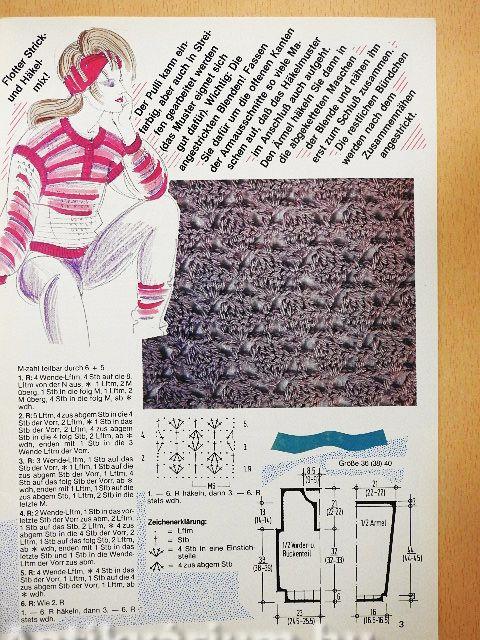 Flotter Strick-
und Häkel-
mix!
Der Pulli kann ein-
farbig, aber auch in Strei-
fen gearbeitet werden
(das Muster eignet sich
gut dafür). Wichtig: Die
angestrickten Blenden! Fassen
Sie dafür um die offenen Kanten
der Armausschnitte so viele Ma-
schen auf, daß das Häkelmuster
im Anschluß auch aufgeht.
Den Ärmel häkeln Sie dann in
die abgeketteten Maschen
der Blende und nähen ihn
erst zum Schluß zusammen.
Die restlichen Bündchen
werden nach dem
Zusammennähen
angestrickt.
M-zahl teilbar durch 6 + 5
1. R: 4 Wende-Lftm, 4 Stb auf die 8.
Lftm von der N aus, ∗ 1 Lftm, 2 M
überg, 1 Stb in die folg M, 1 Lftm, 2
M überg, 4 Stb in die folg M, ab ∗
wdh.
2. R: 5 Lftm, 4 zus abgem Stb in die 4
Stb der Vorr, 2 Lftm, ∗ 1 Stb in das
Stb der Vorr, 2 Lftm, 4 zus abgem
Stb in die 4 folg Stb, 2 Lftm, ab ∗
wdh, enden mit 1 Stb in die 3
Wende Lftm der Vorr.
3. R: 3 Wende-Lftm, 1 Stb auf das
Stb der Vorr, ∗ 1 Lftm, 1 Stb auf die
zus abgem Stb der Vorr, 1 Lftm, 4
Stb auf das folg Stb der Vorr, ab ∗
wdh, enden mit 1 Lftm, 1 Stb auf die
zus abgem Stb, 1 Lftm, 2 Stb in die
letzte M.
4. R: 2 Wende-Lftm, 1 Stb in das vor-
letzte Stb der Vorr zus abm, 2 Lftm,
1 Stb auf das Stb, 2 Lftm, ∗ 4 zus
abgem Stb in die 4 Stb der Vorr, 2
Lftm, 1 Stb auf das folg Stb, 2 Lftm,
ab ∗ wdh, enden mit 1 Stb in das
letzte Stb und 1 Stb in die Wende-
Lftm der Vorr zus abm.
5. R: 4 Wende-Lftm, ∗ 4 Stb in das
Stb der Vorr, 1 Lftm, 1 Stb auf die 4
zus abgem Stb der Vorr, 1 Lftm, ab ∗
wdh.
6. R: Wie 2. R
1. — 6. R häkeln, dann 3. — 6. R
stets wdh.
5.
4.
2.
1.R
MS
1. — 6. R häkeln, dann 3. — 6. R
stets wdh.
Zeichenerklärung:
= Lftm
= Stb
= 4 Stb in eine Einstich-
stelle
= 4 zus abgem Stb
Größe 36 (38) 40
8,5
21
(22-22)
13
(14-14)
21
(22-22)
1/2 Vorder- u.
Rückenteil
1/2 Ärmel
32
(32-33)
44
(44-45)
6
23
(24,5-25,5)
16
(16,5-16,5)
3